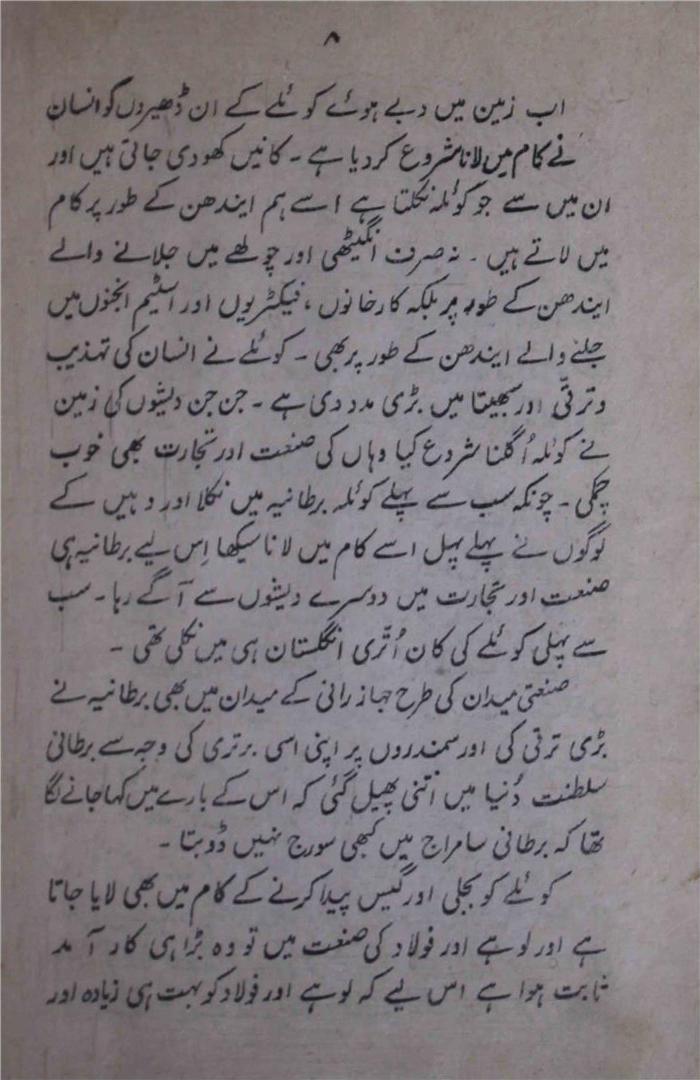 ۸
اب زمین میں دبے ہوئے کوئلے کے ان ڈھیروں کو انسان
نے کام میں لانا شروع کردیا ہے۔ کانیں کھودی جاتی ہیں اور
ان میں سے جو کوئلہ نکلتا ہے اسے ہم ایندھن کے طور پر کام
میں لاتے ہیں۔ نہ صرف انگیٹھی اور چولھے میں جلانے والے
ایندھن کے طور پر بلکہ کارخانوں، فیکٹریوں اور اسٹیم انجنوں میں
جلنے والے ایندھن کے طور پر بھی۔ کوئلے نے انسان کی تہذیب
و ترقّی اور سبھیتا میں بڑی مدد دی ہے۔ جن جن دیشوں کی زمین
نے کوئلہ اُگلنا شروع کیا وہاں کی صنعت اور تجارت بھی خوب
چمکی۔ چونکہ سب سے پہلے کوئلہ برطانیہ میں نکلا اور وہیں کے
لوگوں نے پہلے پہل اسے کام میں لانا سیکھا اِس لیے برطانیہ ہی
صنعت اور تجارت میں دوسرے دیشوں سے آگے رہا۔ سب
سے پہلی کوئلے کی کان اُتّری انگلستان ہی میں نکلی تھی۔
صنعتی میدان کی طرح جہاز رانی کے میدان میں بھی برطانیہ نے
بڑی ترقی کی اور سمندروں پر اپنی اسی برتری کی وجہ سے برطانی
سلطنت دُنیا میں اتنی پھیل گئی کہ اس کے بارے میں کہا جانے لگا
تھا کہ برطانی سامراج میں کبھی سورج نہیں ڈوبتا۔
کوئلے کو بجلی اور گیس پیدا کرنے کے کام میں بھی لایا جاتا
ہے اور لوہے اور فولاد کی صنعت میں تو وہ بڑا ہی کار آمد
ثابت ہوا ہے اس لیے کہ لوہے اور فولاد کو بہت ہی زیادہ اور